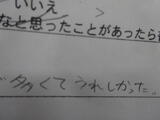 いいえ
なと思ったことがあったら
多くてうれしかった。